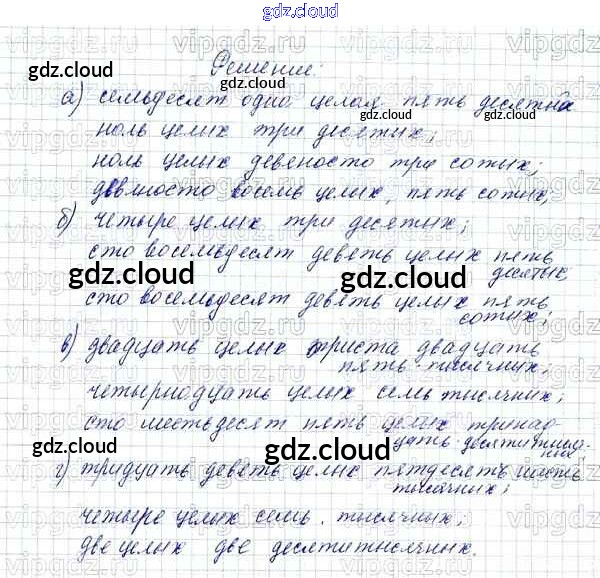 gdz.cloud
Решение:
а) семьдесят одна целая пять десятых
ноль целых три десятых;
ноль целых девяносто три сотых;
девяносто восемь целых, пять сотых,
б) четыре целых три десятых;
сто восемьдесят девять целых пять
десятых
сто восемьдесят девять целых пять
сотых;
в) двадцать целых триста двадцать
пять тысячных;
четырнадцать целых семь тысячных;
сто шестьдесят пять целых тринад
цать десятитысяч-
ных;
г) тридцать девять целых пятьдесят шесть
тысячных;
четыре целых семь тысячных;
две целых две десятитысячных.